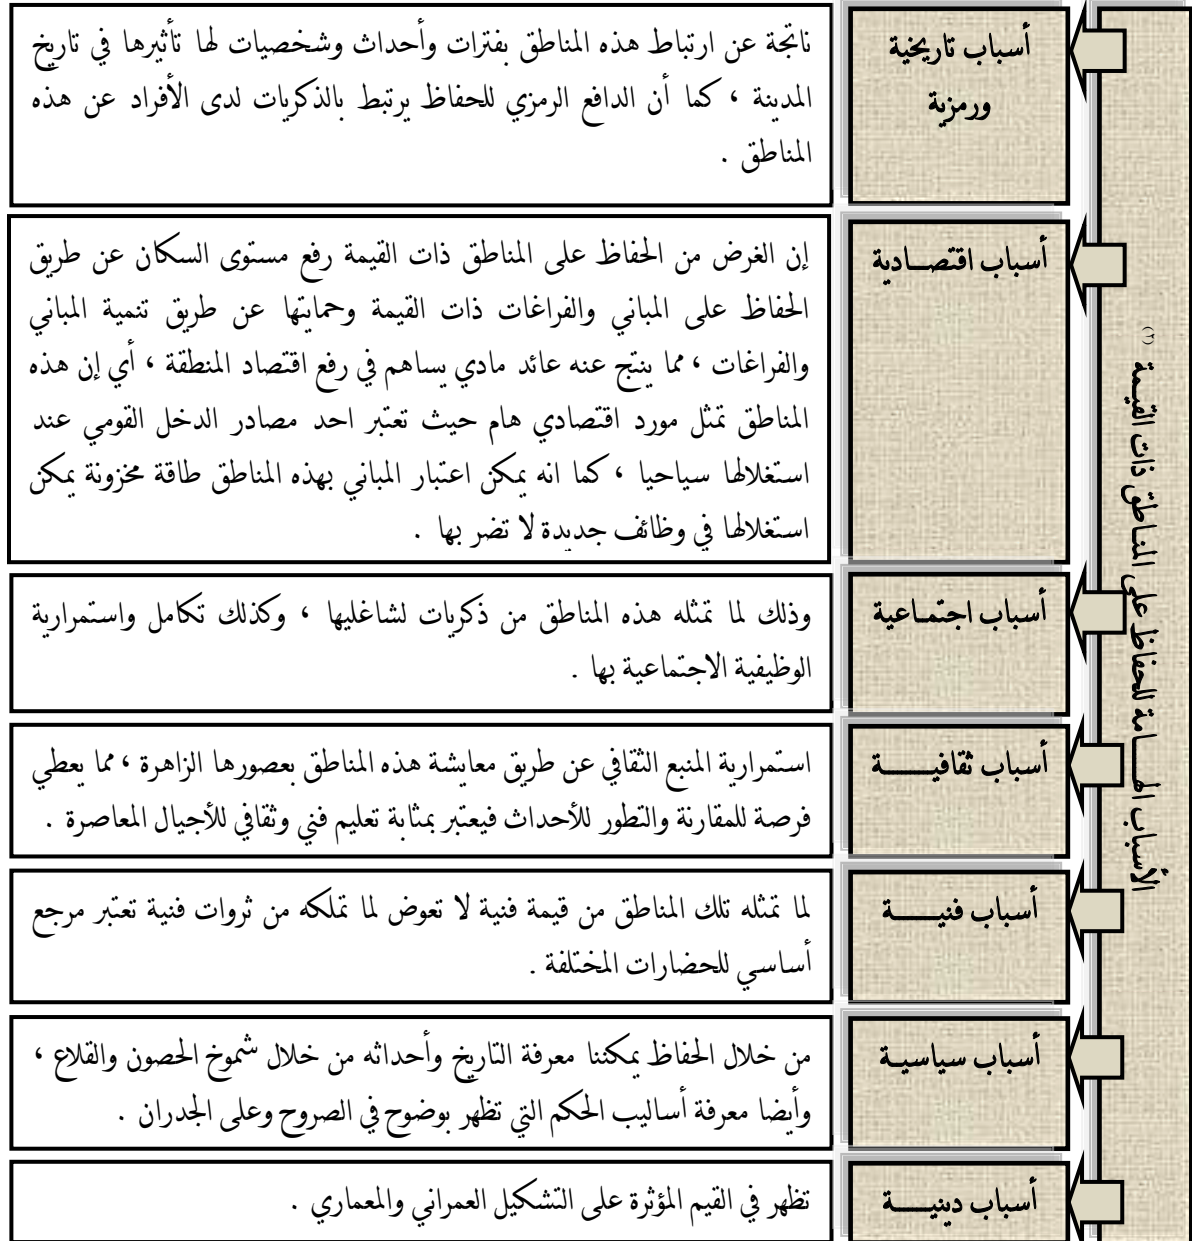 الأسباب الهـــامة للحفاظ على المناطق ذات القيـمة (٢)
أسباب تاريخية
ورمزية
ناتجة عن ارتباط هذه المناطق بفترات وأحداث وشخصيات لها تأثيرها في تاريخ
المدينة ، كما أن الدافع الرمزي للحفاظ يرتبط بالذكريات لدى الأفراد عن هذه
المناطق .
أسباب اقتصــادية
إن الغرض من الحفاظ على المناطق ذات القيمة رفع مستوى السكان عن طريق
الحفاظ على المباني والفراغات ذات القيمة وحمايتها عن طريق تنمية المباني
والفراغات ، مما ينتج عنه عائد مادي يساهم في رفع اقتصاد المنطقة ، أي إن هذه
المناطق تمثل مورد اقتصادي هام حيث تعتبر احد مصادر الدخل القومي عند
استغلالها سياحيا ، كما انه يمكن اعتبار المباني بهذه المناطق طاقة مخزونة يمكن
استغلالها في وظائف جديدة لا تضر بها .
أسباب اجتمـاعية
وذلك لما تمثله هذه المناطق من ذكريات لشاغليها ، وكذلك تكامل واستمرارية
الوظيفية الاجتماعية بها .
أسباب ثقافيــــــة
استمرارية المنبع الثقافي عن طريق معايشة هذه المناطق بعصورها الزاهرة ، مما يعطي
فرصة للمقارنة والتطور للأحداث فيعتبر بمثابة تعليم فني وثقافي للأجيال المعاصرة .
أسباب فنيــــــة
لما تمثله تلك المناطق من قيمة فنية لا تعوض لما تملكه من ثروات فنية تعتبر مرجع
أساسي للحضارات المختلفة .
أسباب سياسيـة
من خلال الحفاظ يمكننا معرفة التاريخ وأحداثه من خلال شموخ الحصون والقلاع ،
وأيضا معرفة أساليب الحكم التي تظهر بوضوح في الصروح وعلى الجدران .
أسباب دينيـــــة
تظهر في القيم المؤثرة على التشكيل العمراني والمعماري .